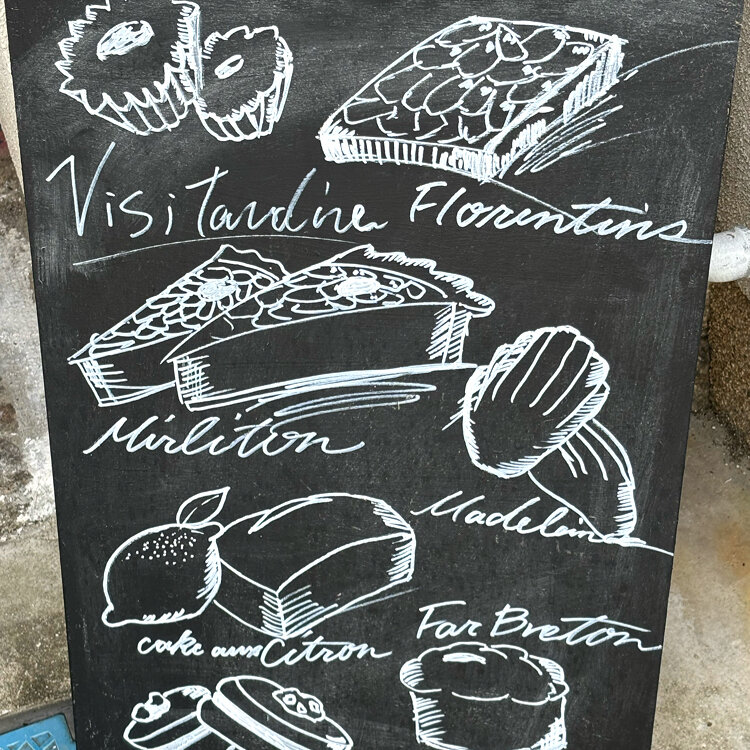 Visitandine
Florentins
Mirliton
Madeleine
cake aux Citron
Far Breton